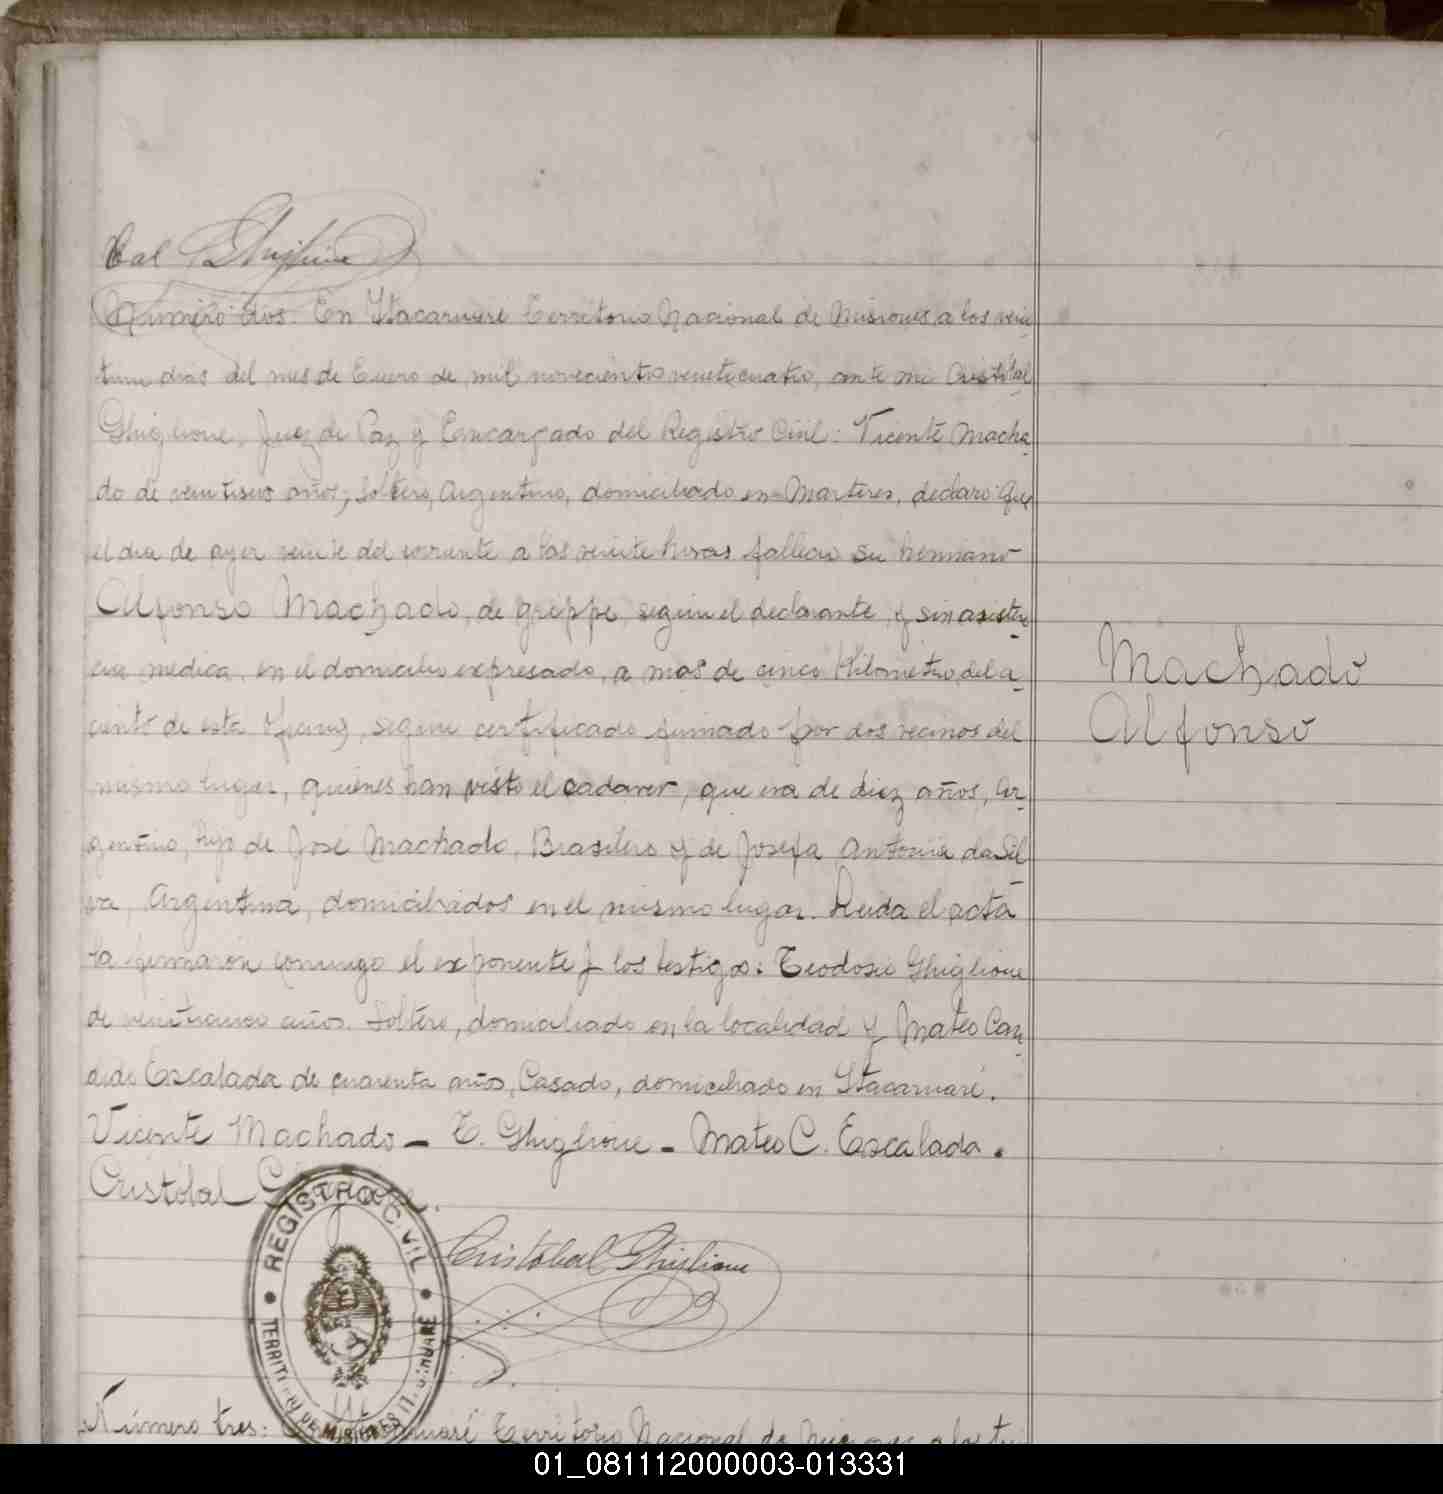 bal Ghiglione
Número dos: En Itacaruaré Territorio Nacional de Misiones a los vein
tiun dias del mes de Enero de mil novecientos veinticuatro, ante mi Cristóbal
Ghiglione, Juez de Paz y Encargado del Registro Civil: Vicente Macha
do de veintiseis años, soltero, Argentino, domiciliado en Martires, declaró que
el dia de ayer veinte del corriente a las veinte horas falleció su hermano
Alfonso Machado, de grippe, según el declarante y sin asisten
cia medica, en el domicilio expresado, a mas de cinco Kilometros del a
ciento de esta oficina, según certificado firmado por dos vecinos del
mismo lugar, quienes han visto el cadaver, que era de diez años, Ar
gentino, hijo de José Machado, Brasilero y de Josefa Antonia da Sil
va, Argentina, domiciliados en el mismo lugar. Leida el acta
la firmaron conmigo el exponente y los testigos: Teodosio Ghiglione
de veinticinco años. Soltero, domiciliado en la localidad y Mateo Can
dido Escalada de cuarenta años, Casado, domiciliado en Itacaruaré.
Vicente Machado - T. Ghiglione - Mateo C. Escalada.
Cristóbal
Cristóbal Ghiglione
REGISTRO CIVIL
TERRITORIO DE MISIONES ITACARUARÉ
Número tres: Itacaruaré Territorio Nacional de
Machado
Alfonso
01_081112000003-013331